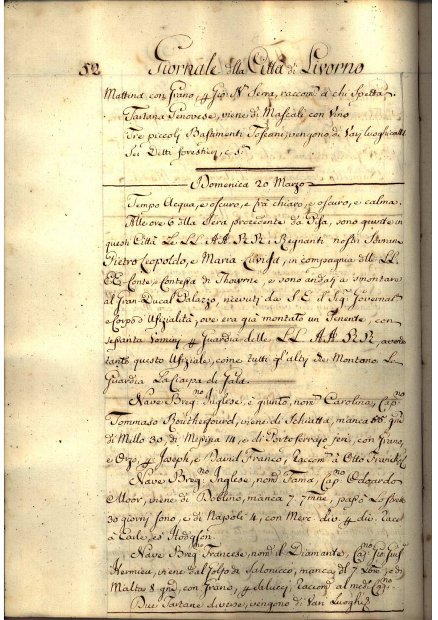 52 Giornale della Città di Livorno
Mattina con Grano, p Gio: N. Serra, raccom: a chi Spetta
Tartana Genovese, viene di Mascali con Vino
Tre piccoli Bastimenti Toscani, vengono di Varj luoghi
Sei Detti forestieri, c. s.
Domenica 20 Marzo
Tempo Acqua, e oscuro, e frà chiaro, e oscuro, e calma.
Alle ore 6 alla Sera procedente da Pisa, sono giunte in
questa Città Le LL. AA. RR. Regnanti nostri Sovrani
Pietro Leopoldo, e Maria Luisa, in compagnia delle LL.
EE. Conte, e Contessa di Thowrne, e sono andati a smontare
al Gran-Ducal Palazzo, ricevuti da S. E. il Sig. Governat
e Corpo d'Ufizialità, ove era già montato un Tenente, con
settanta Uomini p Guardia delle LL. AA. RR.
tanto questo Ufiziale, come tutti gl'altri che Montono La
Guardia La Ciarpa di Gala.
Nave Breg.no Inglese, è giunto, nom. Carolina, Cap.no
Tommaso viene di manca
di Mello 30, di Messina 14, e di Portoferrajo jeri, con Grano,
e Orzo, p Joseph, e David Franco, Raccom. à Otto Franck
Nave Breg.no Inglese, nom. Fama, Cap.no Edgardo
Moor, viene di Dublino, manca 7. passò Lo Stretto
30 giorni sono, e di Napoli 4, con Merc. div. p div. Racc.
à Earle, es Hodgson.
Nave Breg.no Francese, nom. il Diamante, Cap.no Gio: Gius.
Hermieu, viene dal Golfo di Salonicco, manca dl 7 e di
Malta 8 gni, con Grano, p Salucci, Raccom. al med. Cap.no
Due Tartane diverse, vengono di Varj Luoghi